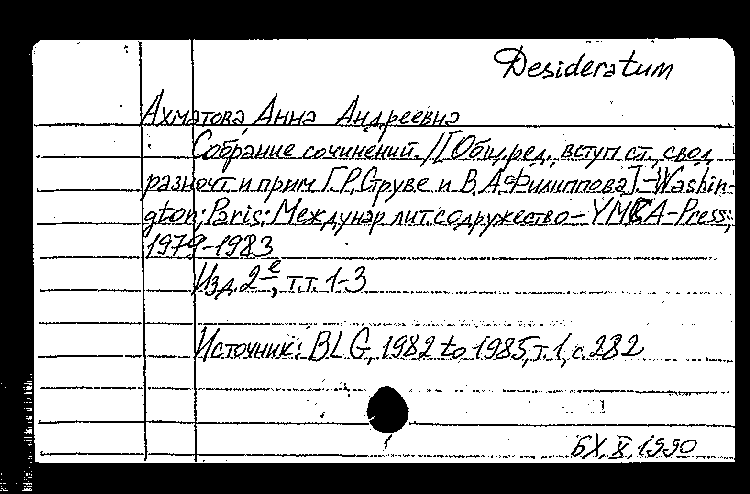 Desideratum
Ахматова, Анна Андреевна
Собрание сочинений. /[Общ. ред., вступ. ст., свод
разночт. и прим. Г.Р.Струве и В.А.Филиппова].-Washin-
gton; Paris: Междунар. лит. содружество - YMCA-Press,
1979-1983
Изд. 2е, т.т. 1-3
Источник: BLG, 1982 to 1985, т.1, с.282
X, 1990